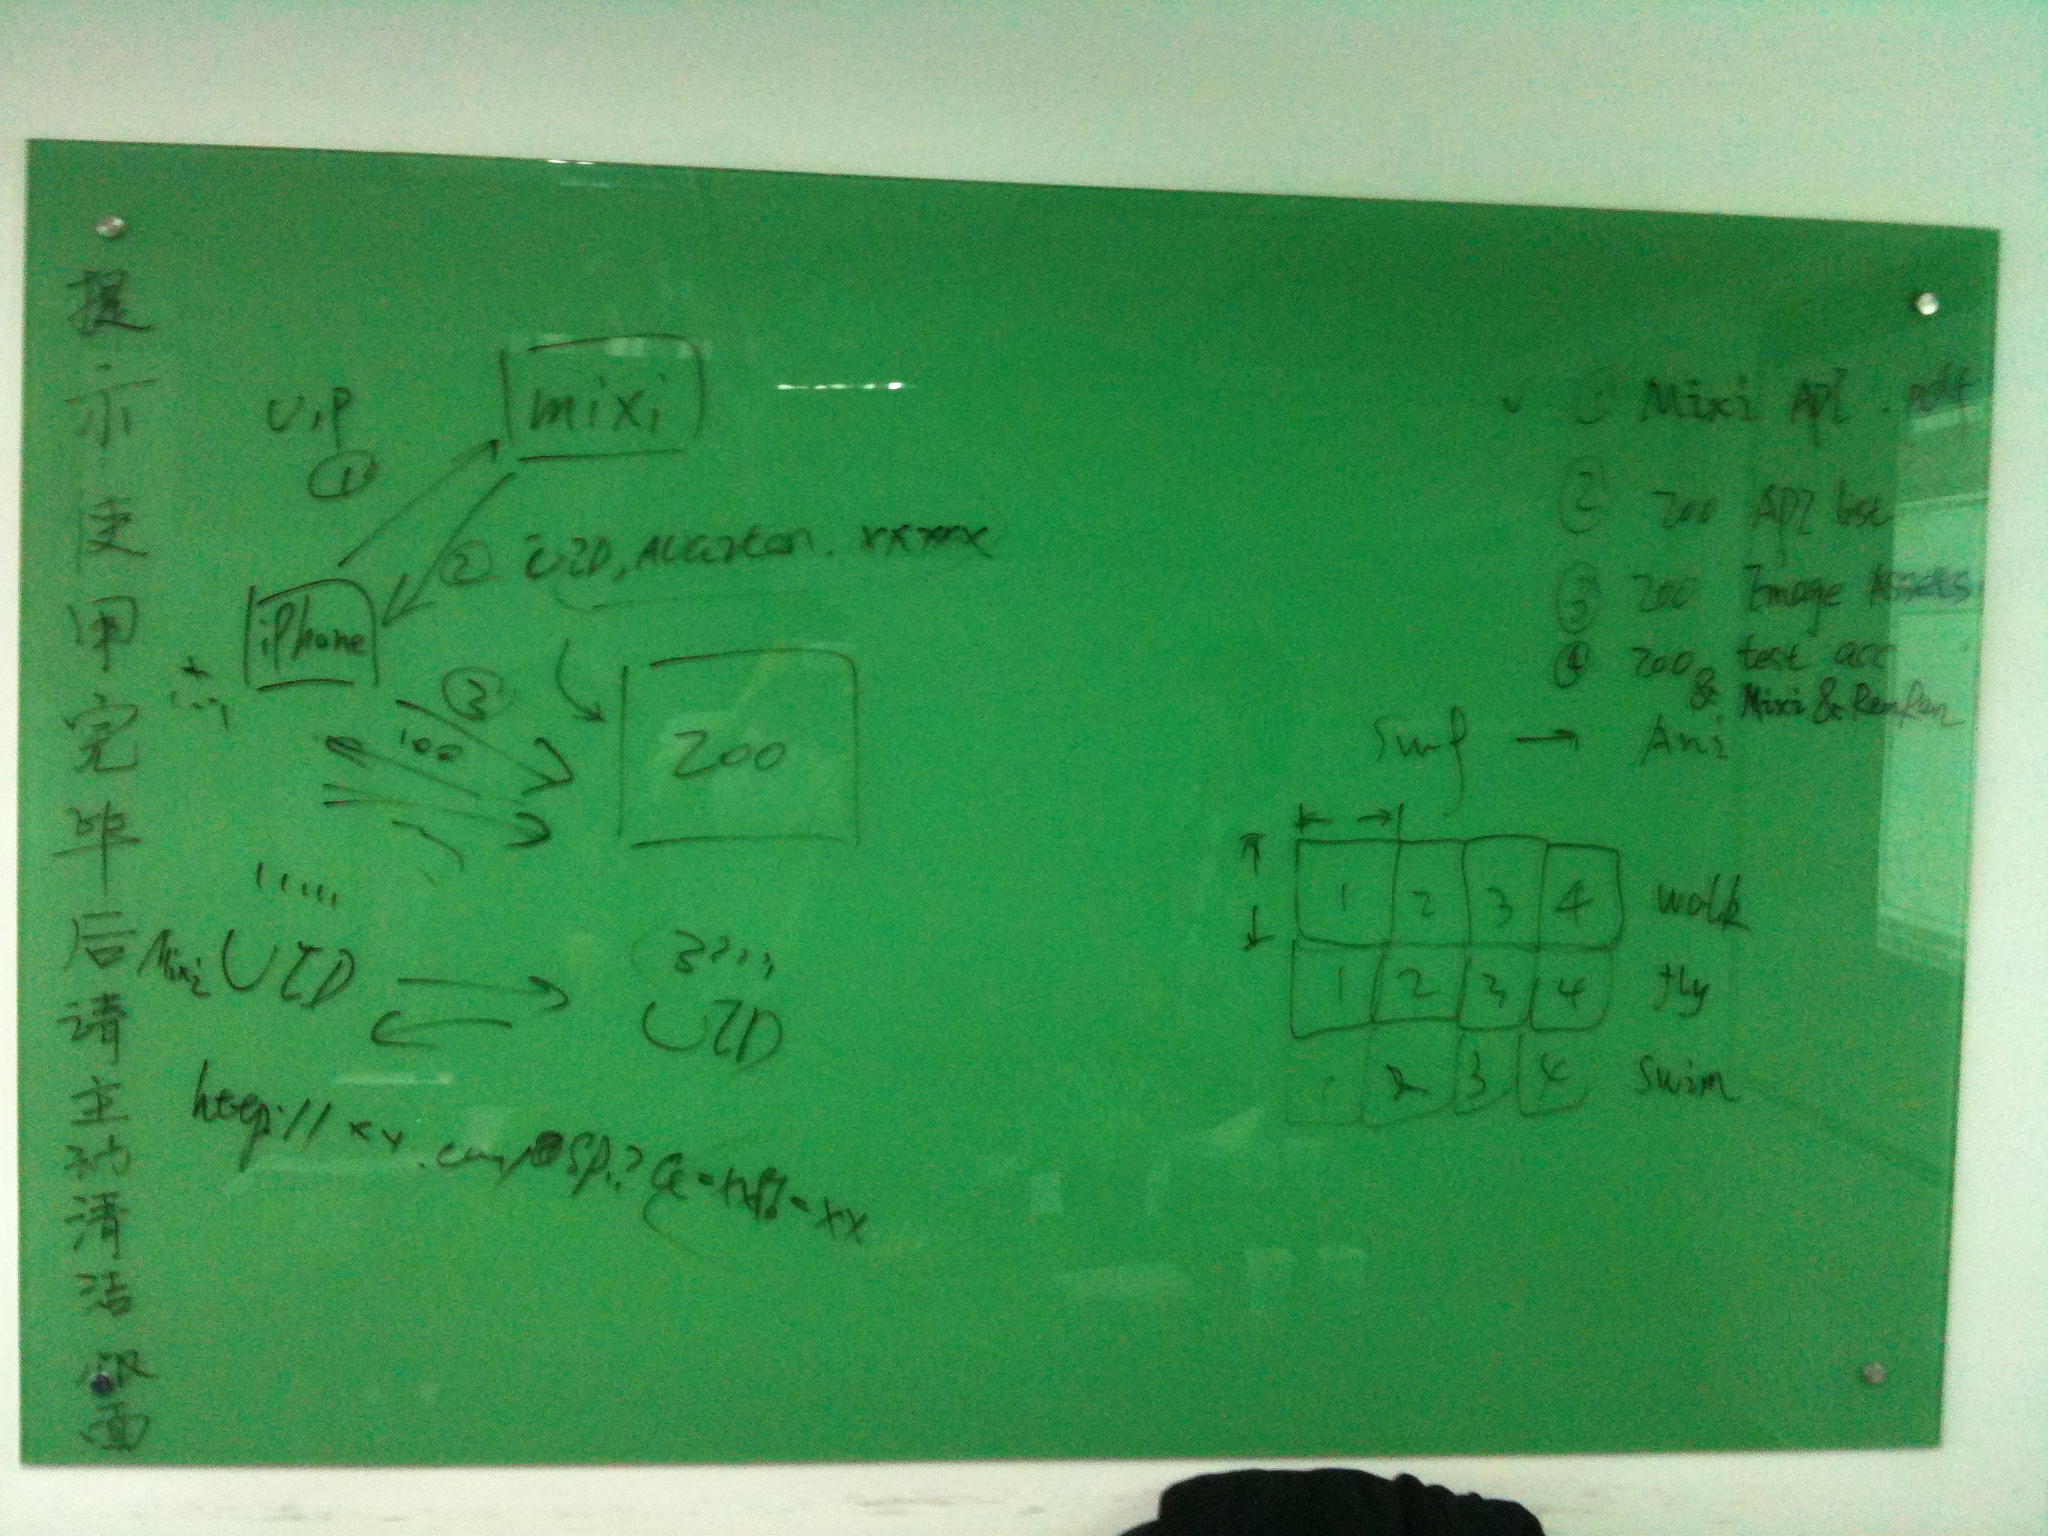 提示使用完毕后请主动清洁板面
U,P
①
mixi
② UID,
iPhone
③
100
ZOO
Mixi UID
UID
http://xx.
① Mixi API .pdf
② ZOO API list
③ ZOO Image Assets
④ ZOO test acc
& Mixi & RenRen
Swf → Ani
1 2 3 4 walk
1 2 3 4 fly
2 3 4 swim